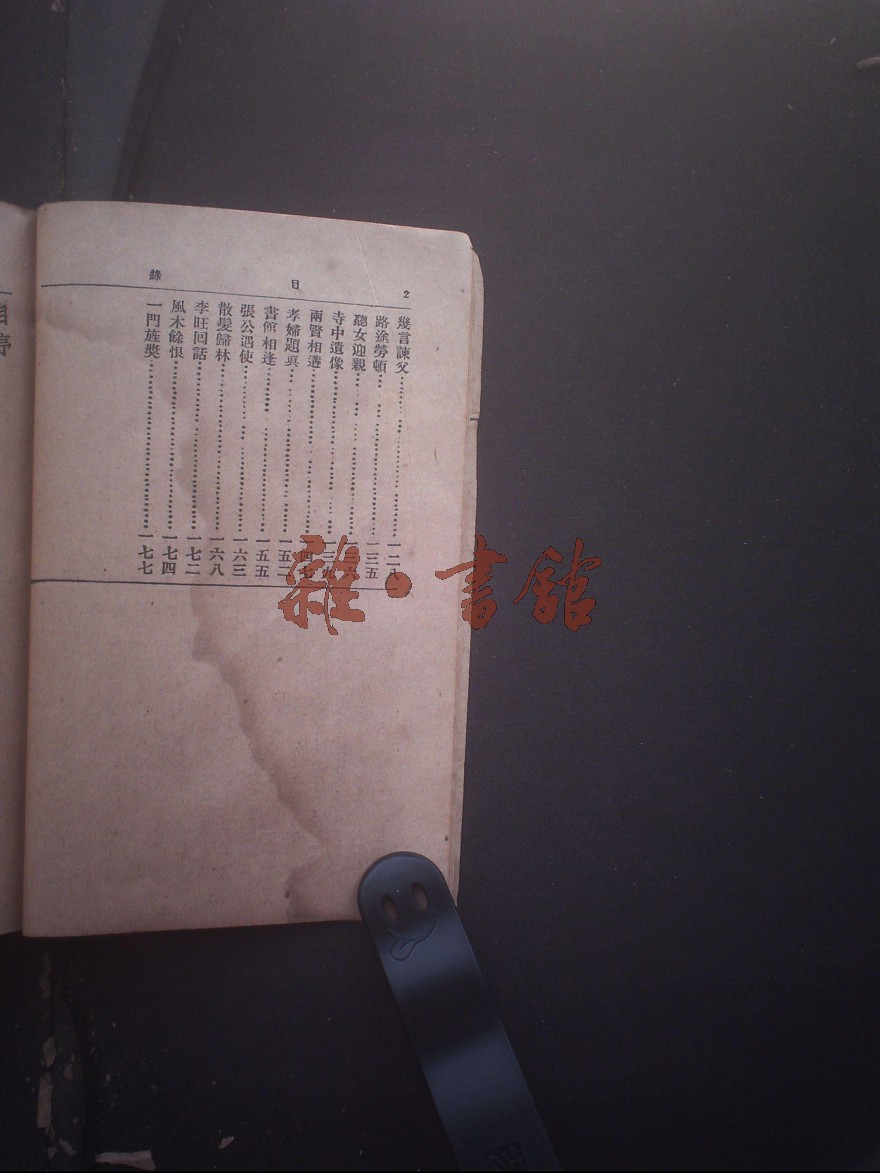 2
目錄
幾言諫父 一二八
路途勞頓 一三五
聽女迎親
寺中遺像 一三九
兩賢相遘 一四七
孝婦題眞 一五二
書館相逢 一五五
張公遇使 一六三
散髮歸林 一六八
李旺回話 一七二
風木餘恨 一七四
一門旌獎 一七七
雜·書館